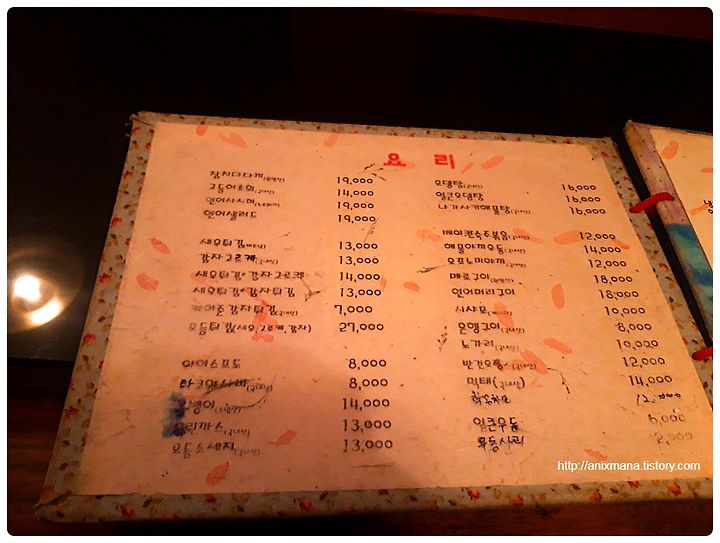 요 리
참치다다끼(원양산) 19,000
고등어초회(국내산) 14,000
연어사시미(노르웨이) 19,000
연어샐러드 19,000
새우튀김(베트남) 13,000
감자고로케(국내산) 13,000
새우튀김+감자고로케 14,000
새우튀김+감자튀김 13,000
케이준감자튀김(국내산) 7,000
모듬튀김(새우,고로케,감자) 27,000
아이스포도 8,000
타코와사비(국내산) 8,000
14,000
13,000
모듬소세지(국내산) 13,000
오뎅탕(국내산) 16,000
얼큰오뎅탕 16,000
나가사키해물탕(국내산) 16,000
베이컨숙주볶음(국내산) 12,000
해물야끼우동(국내산) 14,000
오꼬노미야끼(국내산) 12,000
메로구이(원양산) 18,000
연어머리구이 18,000
시샤모 10,000
은행구이(국내산) 8,000
노가리(국내산) 10,000
반건오징어(국내산) 12,000
먹태(국내산) 14,000
12,000
얼큰우동 6,000
우동사리 2,000
http://anixmana.tistory.com